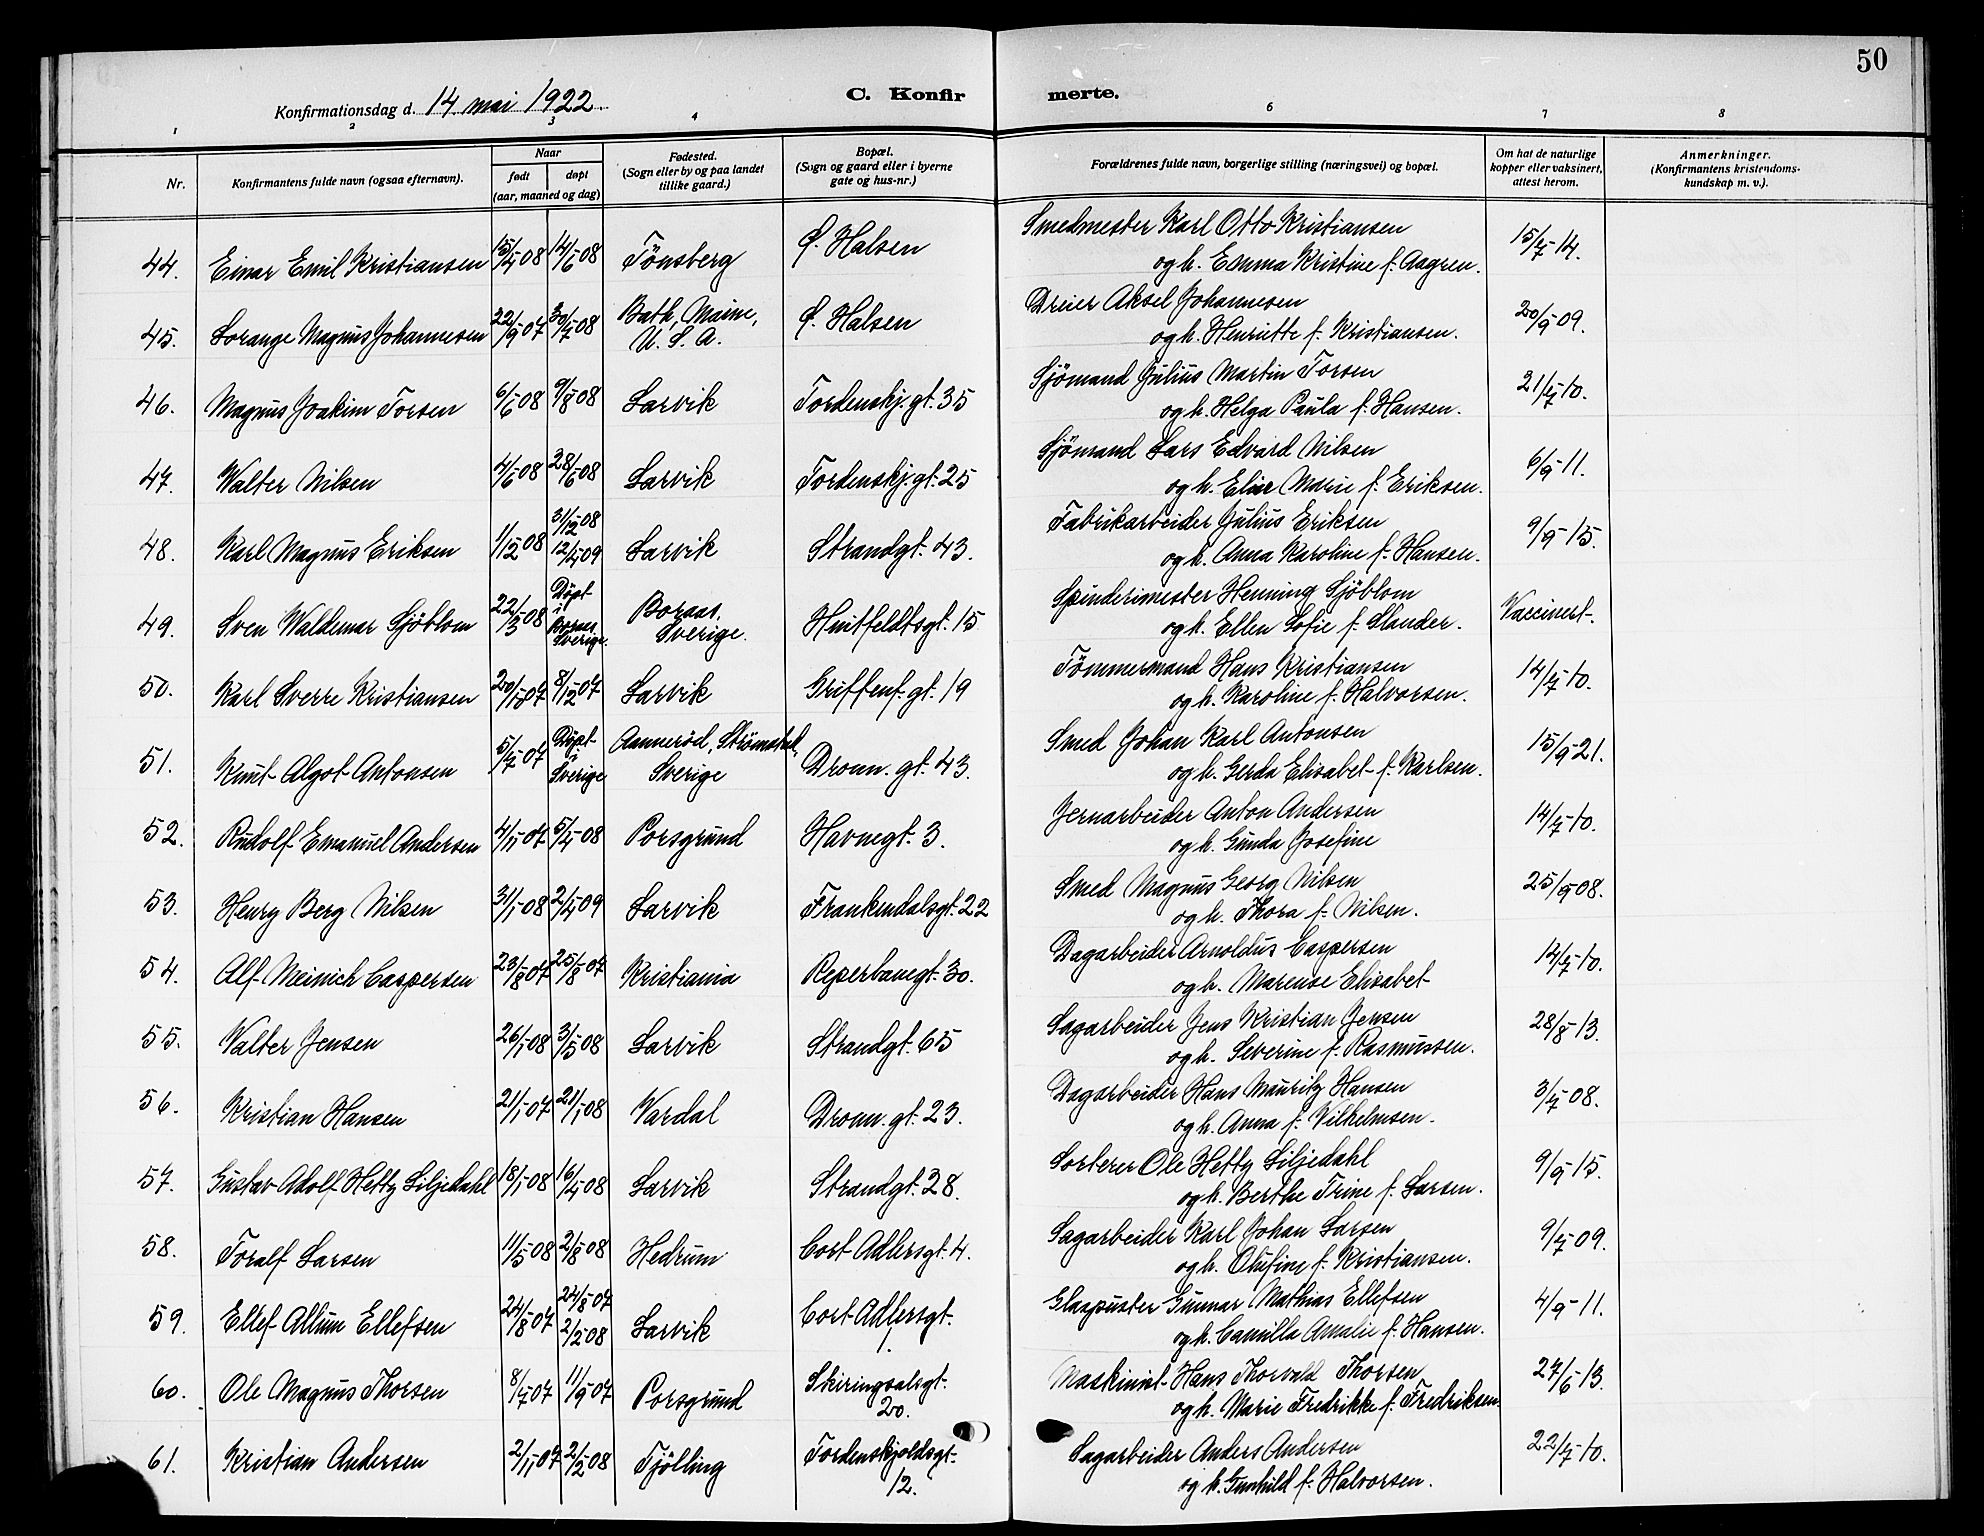 50
Konfirmationsdag d. 14. mai 1922
C. Konfir merte.
1 2 3 4 6 7 8
Nr.
Konfirmantens fulde navn (ogsaa efternavn).
Naar
født døpt
(aar, maaned og dag)
Fødested.
(Sogn eller by og paa landet
tillike gaard.)
Bopæl.
(Sogn og gaard eller i byerne
gate og hus-nr.)
Forældrenes fulde navn, borgerlige stilling (næringsvei) og bopæl.
Om hat de naturlige
kopper eller vaksinert,
attest herom.
Anmerkninger.
(Konfirmantens kristendoms-
kundskap m. v.).
44. Einar Emil Kristiansen 15/4-08 14/6-08 Tönsberg Ø. Halsen Smedmester Karl Otto Kristiansen 15/7-14.
og h. Emma Kristine f. Aagren.
45. Lorange Magnus Johannesen 22/9-07 30/7-08 Bath, Maine, Ø. Halsen Dreier Aksel Johannesen 20/9-09.
U. S. A. og h. Henriette f. Kristiansen.
46. Magnus Joakim Torsen 6/6-08 9/8-08 Larvik Tordenskj. gt. 35 Sjömand Julius Martin Torsen 21/7-10.
og h. Helga Paula f. Hansen.
47. Walter Nilsen 4/6-08 28/6-08 Larvik Tordenskj. gt. 25 Sjömand Lars Edvard Nilsen 6/9-11.
og h. Elise Marie f. Eriksen.
48. Karl Magnus Eriksen 1/12-08 31/12-08 Larvik Strandgt. 43. Fabrikarbeider Julius Eriksen 9/9-15.
12/4-09 og h. Anna Karoline f. Hansen.
49. Sven Waldemar Sjöblom 22/3-08 Döpt i Boraas, Sverige. Boraas, Huitfeldtsgt. 15 Spinderimester Henning Sjöblom Vaccinert.
Sverige. og h. Ellen Sofie f. Slander.
50. Karl Sverre Kristiansen 20/10-07 8/12-07 Larvik Griffenf. gt. 19 Tömmermand Hans Kristiansen 14/7-10.
og h. Karoline f. Halvorsen.
51. Knut Algot Antonsen 5/7-07 Döpt i Sverige Aannerød, Strømstad, Dronn. gt. 43. Smed Johan Karl Antonsen 15/9-21.
Sverige og h. Gerda Elisabet f. Karlsen.
52. Rudolf Emanuel Andersen 4/11-07 5/4-08 Porsgrund Havnegt. 3. Jernarbeider Anton Andersen 14/7-10.
og h. Gunda Josefine
53. Henry Berg Nilsen 31/1-08 2/4-09 Larvik Frankendalsgt. 22 Smed Magnus Georg Nilsen 25/9-08.
og h. Thora f. Nilsen.
54. Alf Meinich Caspersen 23/8-07 25/8-07 Kristiania Reperbanegt. 30. Dagarbeider Arnoldus Caspersen 14/7-10.
og h. Marense Elisabet
55. Valter Jensen 26/1-08 3/5-08 Larvik Strandgt. 65 Sagarbeider Jens Kristian Jensen 28/8-13.
og h. Severine f. Rasmussen.
56. Kristian Hansen 21/1-07 21/1-08 Vardal Dronn. gt. 23. Dagarbeider Hans Mauritz Hansen 3/7-08.
og h. Anna f. Vilhelmsen.
57. Gustav Adolf Hetty Liljedahl 18/1-08 16/4-08 Larvik Strandgt. 28. Sorterer Ole Hetty Liljedahl 9/9-15.
og h. Berthe Trine f. Larsen.
58. Toralf Larsen 11/5-08 2/8-08 Hedrum Cort Adlersgt. 4. Sagarbeider Karl Johan Larsen 9/7-09.
og h. Olufine f. Kristiansen.
59. Ellef Allum Ellefsen 24/8-07 24/8-07 Larvik Cort Adlersgt. Glaspuster Gunnar Mathias Ellefsen 4/9-11.
2/2-08 1. og h. Camilla Amalie f. Hansen.
60. Ole Magnus Thorsen 8/7-07 11/9-07 Porsgrund Skiringsalsgt. Maskinist Hans Thorvald Thorsen 27/6-13.
20. og h. Marie Fredrikke f. Fredriksen.
61. Kristian Andersen 2/11-07 2/2-08 Tjölling Tordenskjoldsgt. Sagarbeider Anders Andersen 22/7-10.
12. og h. Gunhild f. Halvorsen.